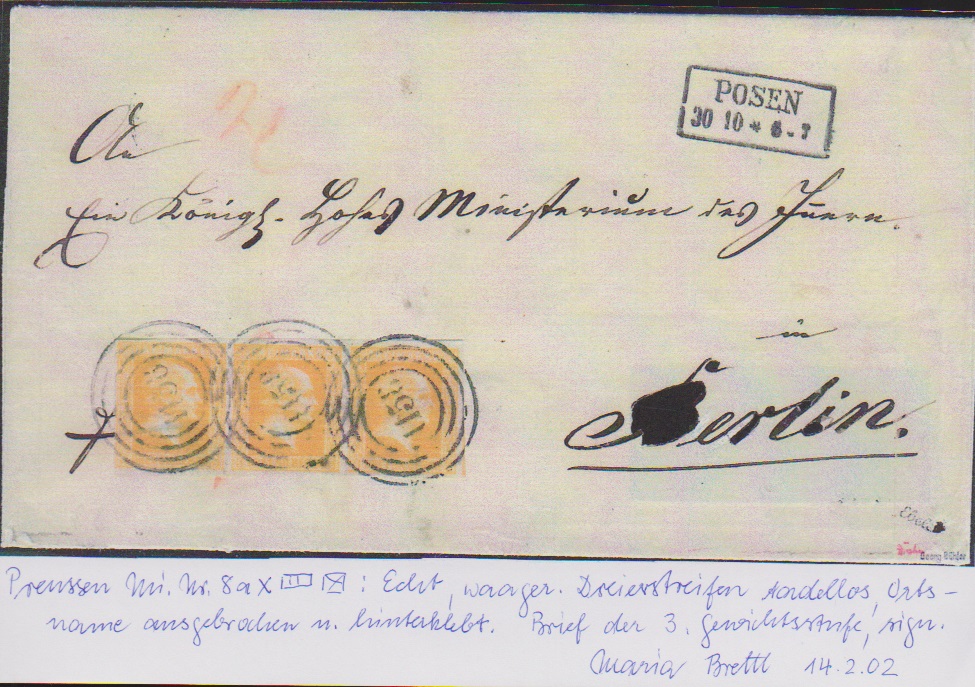 An
POSEN
30 10 * 6-7
Ein Königl. Hohes Ministerium des Innern.
in
Berlin.
Georg Bühler
Preussen Mi. Nr. 8a x : Echt, waager. Dreierstreifen tadellos, Orts-
name ausgebrochen u. hinterklebt. Brief der 3. Gewichtsstufe, sign.
Maria Brettl 14.2.02